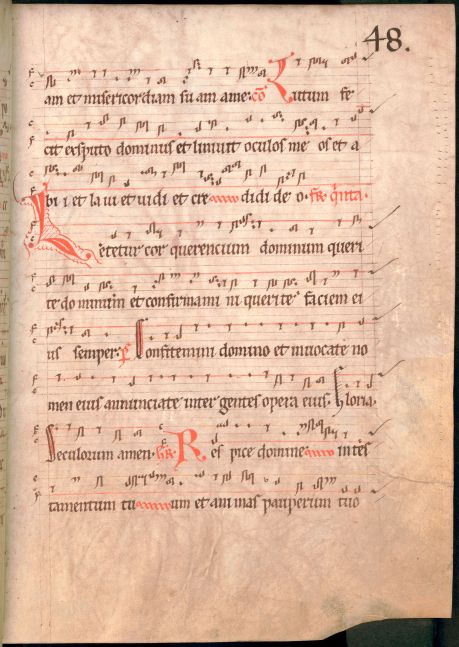 48.
am et misericordiam suam ame. cō Lutum fe
cit ex sputo dominus et liniuit oculos me os et a
bi i et laui et uidi et cre didi de o. fr̄ qͥnta.
Letetur cor querencium dominum queri
te dominum et confirmamini querite faciem ei
us semper. p̄ Confitemini domino et inuocate no
men eius annunciate inter gentes opera eius. Gloria.
Seculorum amen. Gr̄ Res pice domine in tes
tamentum tu um et animas pauperum tuo